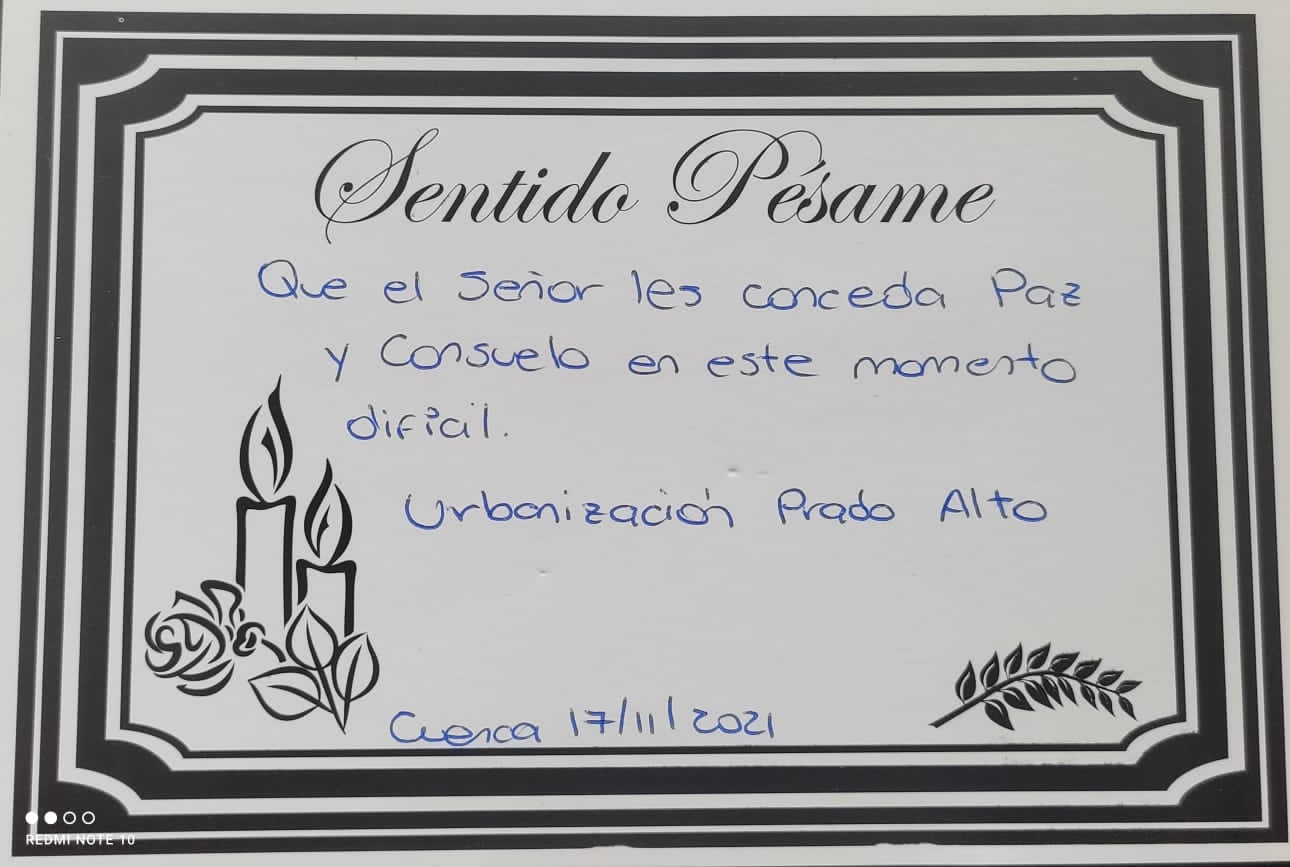 Sentido Pésame
Que el Señor les conceda Paz
y Consuelo en este momento
dificil.
Urbanización Prado Alto
Cuenca 17/11/2021
REDMI NOTE 10